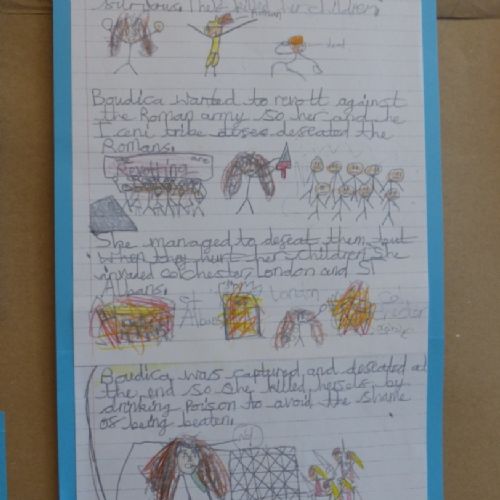 killed
Roman
dead
Boudica wanted to revolt against
the Roman army so her and he
Iceni tribe deseated the
Romans.
Revolting
She managed to deseat them but
When they hurt her children She
invaded Colchester, London and St
Albans.
St
Albans
London
Boudica was captured and deseated at
the end so She killed herself by
drinking Poison to avoid the Shame
of being beaten.